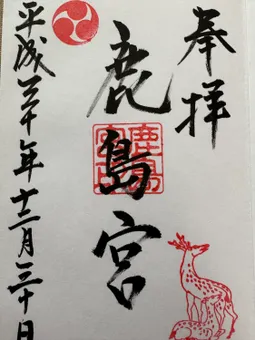 奉拝
鹿島宮
鹿島宮印
平成三十年十二月三十日